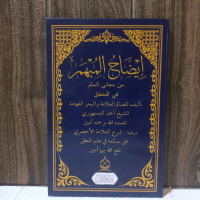 إيضاح المبهم
من معاني السلم
في المنطق
تأليف العالم العلامة والبحر الفهامة
الشيخ أحمد الدمنهوري
تغمده الله برحمته آمين
ويليه : شرح العلامة الأخضري
على سلمه في علم المنطق
نفع الله بهما آمين